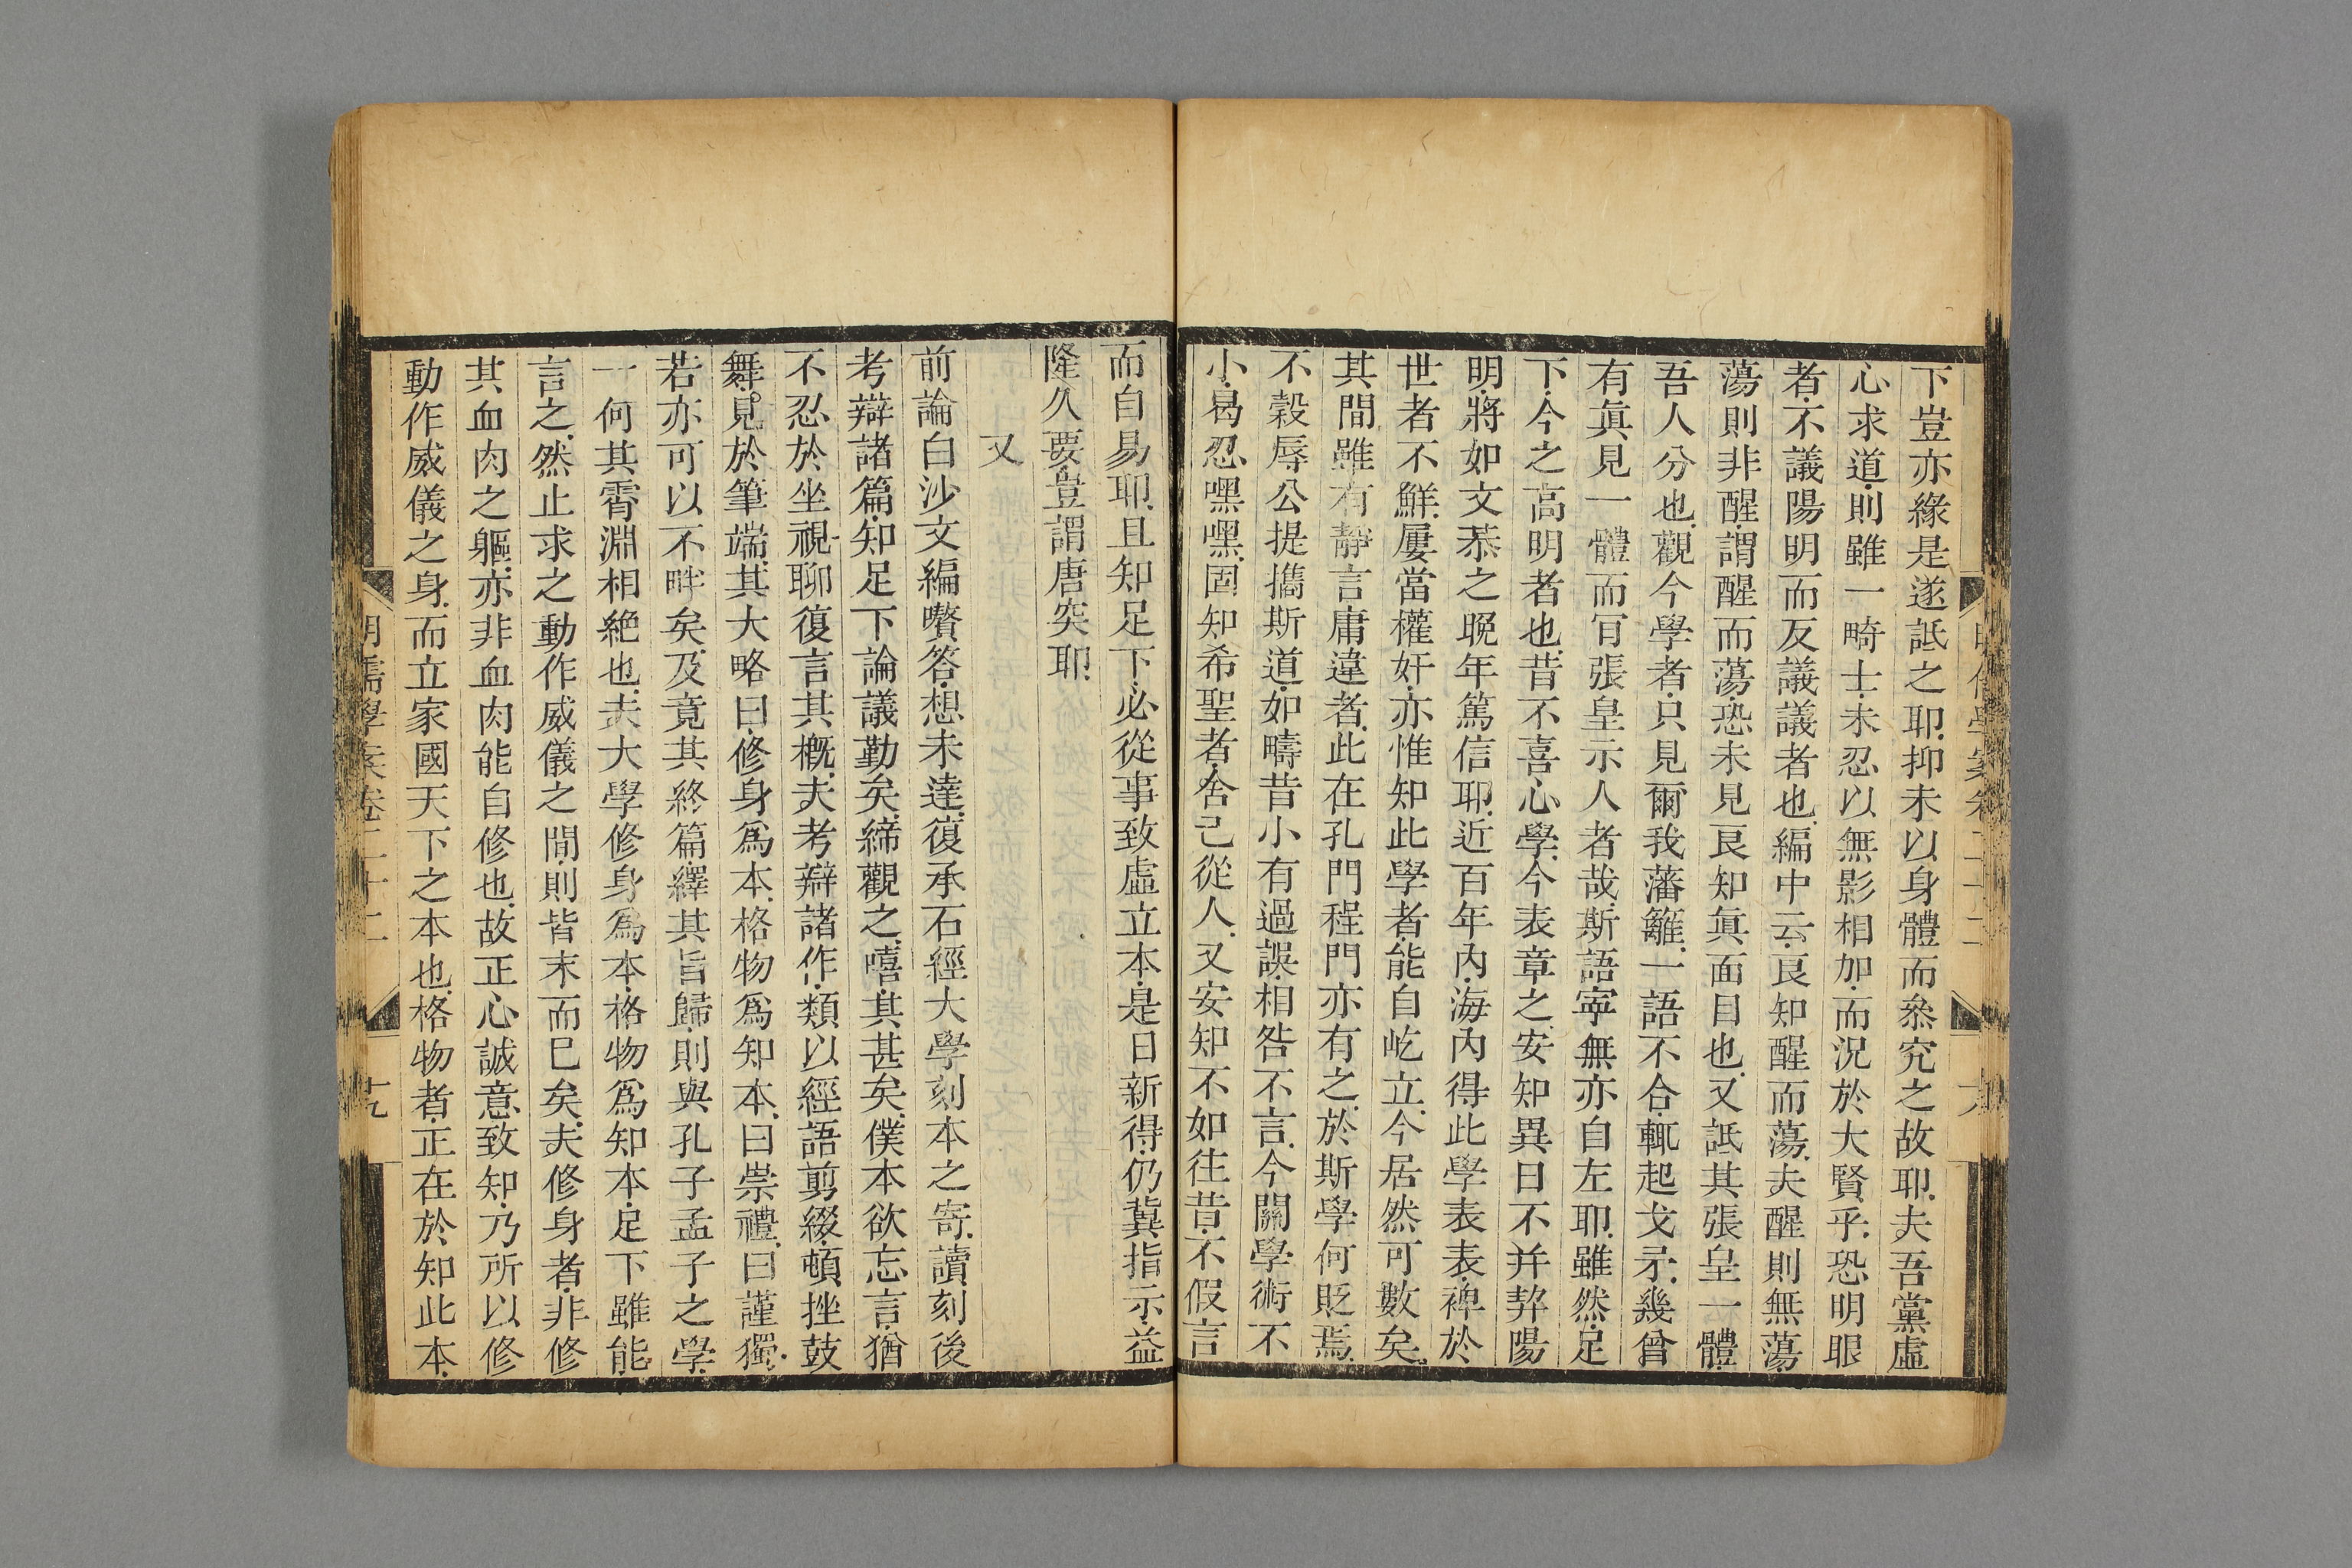 下豈亦緣是遂詆之耶抑未以身體而叅究之故耶夫吾黨虛
心求道則雖一畸士未忍以無影相加而況於大賢乎恐明眼
者不議陽明而反議議者也編中云良知醒而蕩夫醒則無蕩
蕩則非醒謂醒而蕩恐未見良知眞面目也又詆其張皇一體
吾人分也觀今學者只見爾我藩籬一語不合輒起戈矛幾曾
有眞見一體而肎張皇示人者哉斯語寧無亦自左耶雖然足
下今之高明者也昔不喜心學今表章之安知異日不并契陽
明將如文恭之晚年篤信耶近百年內海內得此學表表裨於
世者不鮮屢當權奸亦惟知此學者能自屹立今居然可數矣
其間雖有靜言庸違者此在孔門程門亦有之於斯學何貶焉
不穀辱公提攜斯道如疇昔小有過誤相咎不言今關學術不
小曷忍嘿嘿固知希聖者舍己從人又安知不如往昔不假言
而自易耶且知足下必從事致虛立本是日新得仍冀指示益
隆久要豈謂唐突耶
又
前論白沙文編嚽答想未達復承石經大學刻本之寄讀刻後
考辯諸篇知足下論議勤矣締觀之嘻其甚矣僕本欲忘言猶
不忍於坐視聊復言其槪夫考辯諸作類以經語剪綴頓挫鼓
舞見於筆端其大略曰修身爲本格物爲知本曰崇禮曰謹獨
若亦可以不畔矣及竟其終篇繹其旨歸則與孔子孟子之學
一何其霄淵相絶也夫大學修身爲本格物爲知本足下雖能
言之然止求之動作威儀之間則皆末而已矣夫修身者非修
其血肉之軀亦非血肉能自修也故正心誠意致知乃所以修
動作威儀之身而立家國天下之本也格物者正在於知此本
明儒學案卷二十二
十九